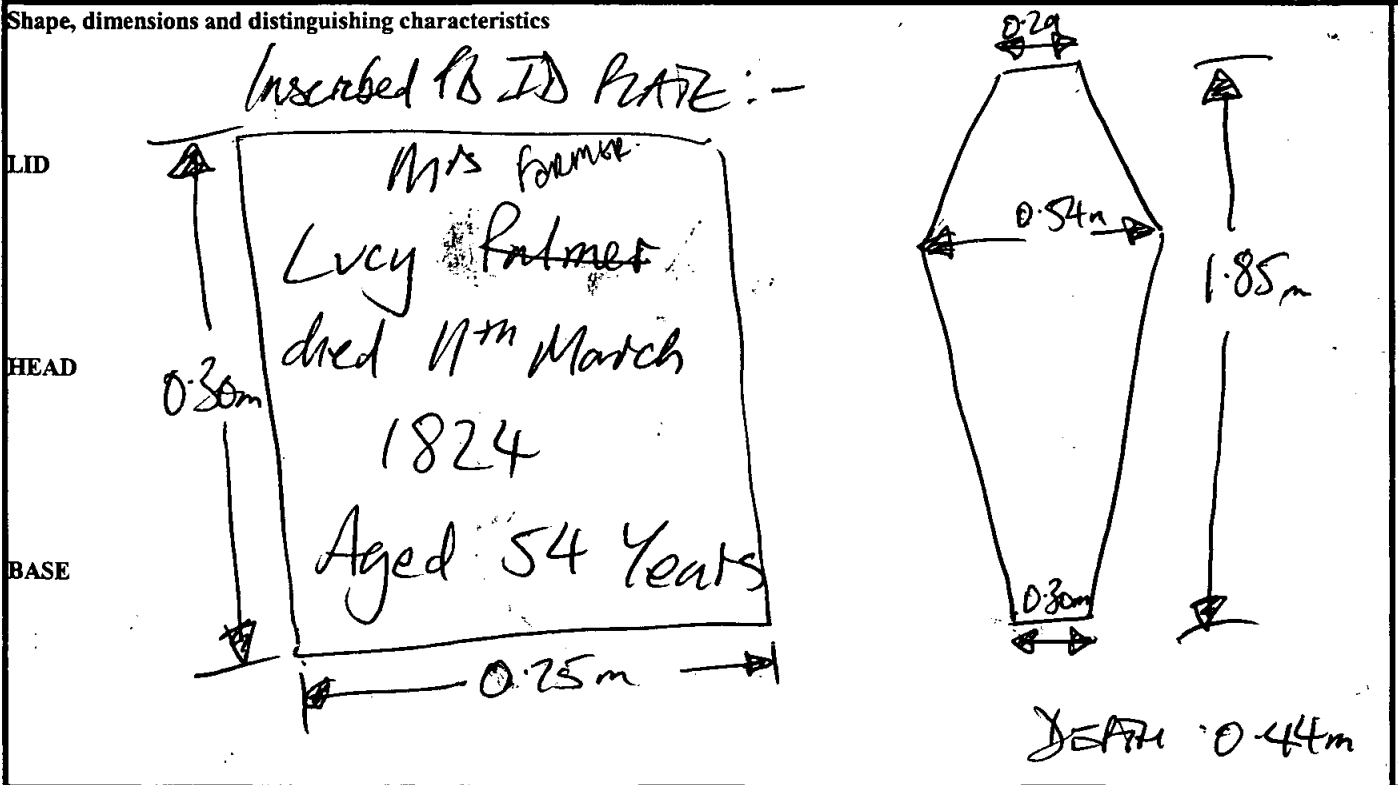 Shape, dimensions and distinguishing characteristics
Inscribed PB ID PLATE :-
LID
Mrs FARMER.
Lucy Palmer
died 11th March
HEAD
0.30m
1824
Aged 54 Years
BASE
0.25m
0.29
0.54m
1.85m
0.30m
DEPTH 0.44m